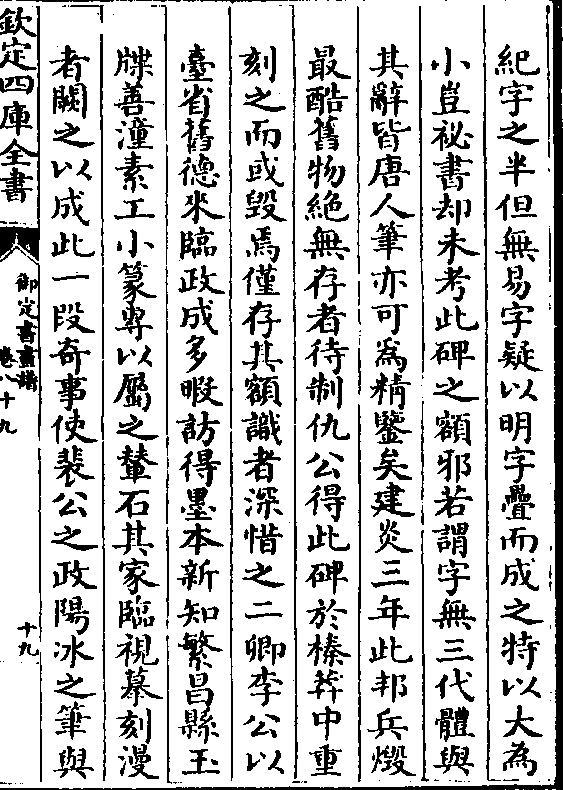 紀字之半但無易字疑以明字疊而成之特以大為
小豈祕書却未考此碑之額邪若謂字無三代體與
其辭皆唐人筆亦可為精鑒矣建炎三年此邦兵燬
最酷舊物絶無存者待制仇公得此碑於榛莽中重
刻之而或毀焉僅存其額識者深惜之二卿李公以
臺省舊德來臨政成多暇訪得墨本新知繁昌縣王
牒善潼素工小篆專以屬之輦石其家臨視摹刻漫
者闕之以成此一段奇事使裴公之政陽冰之筆與
欽定四庫全書
御定書畫譜
卷八十九
十九